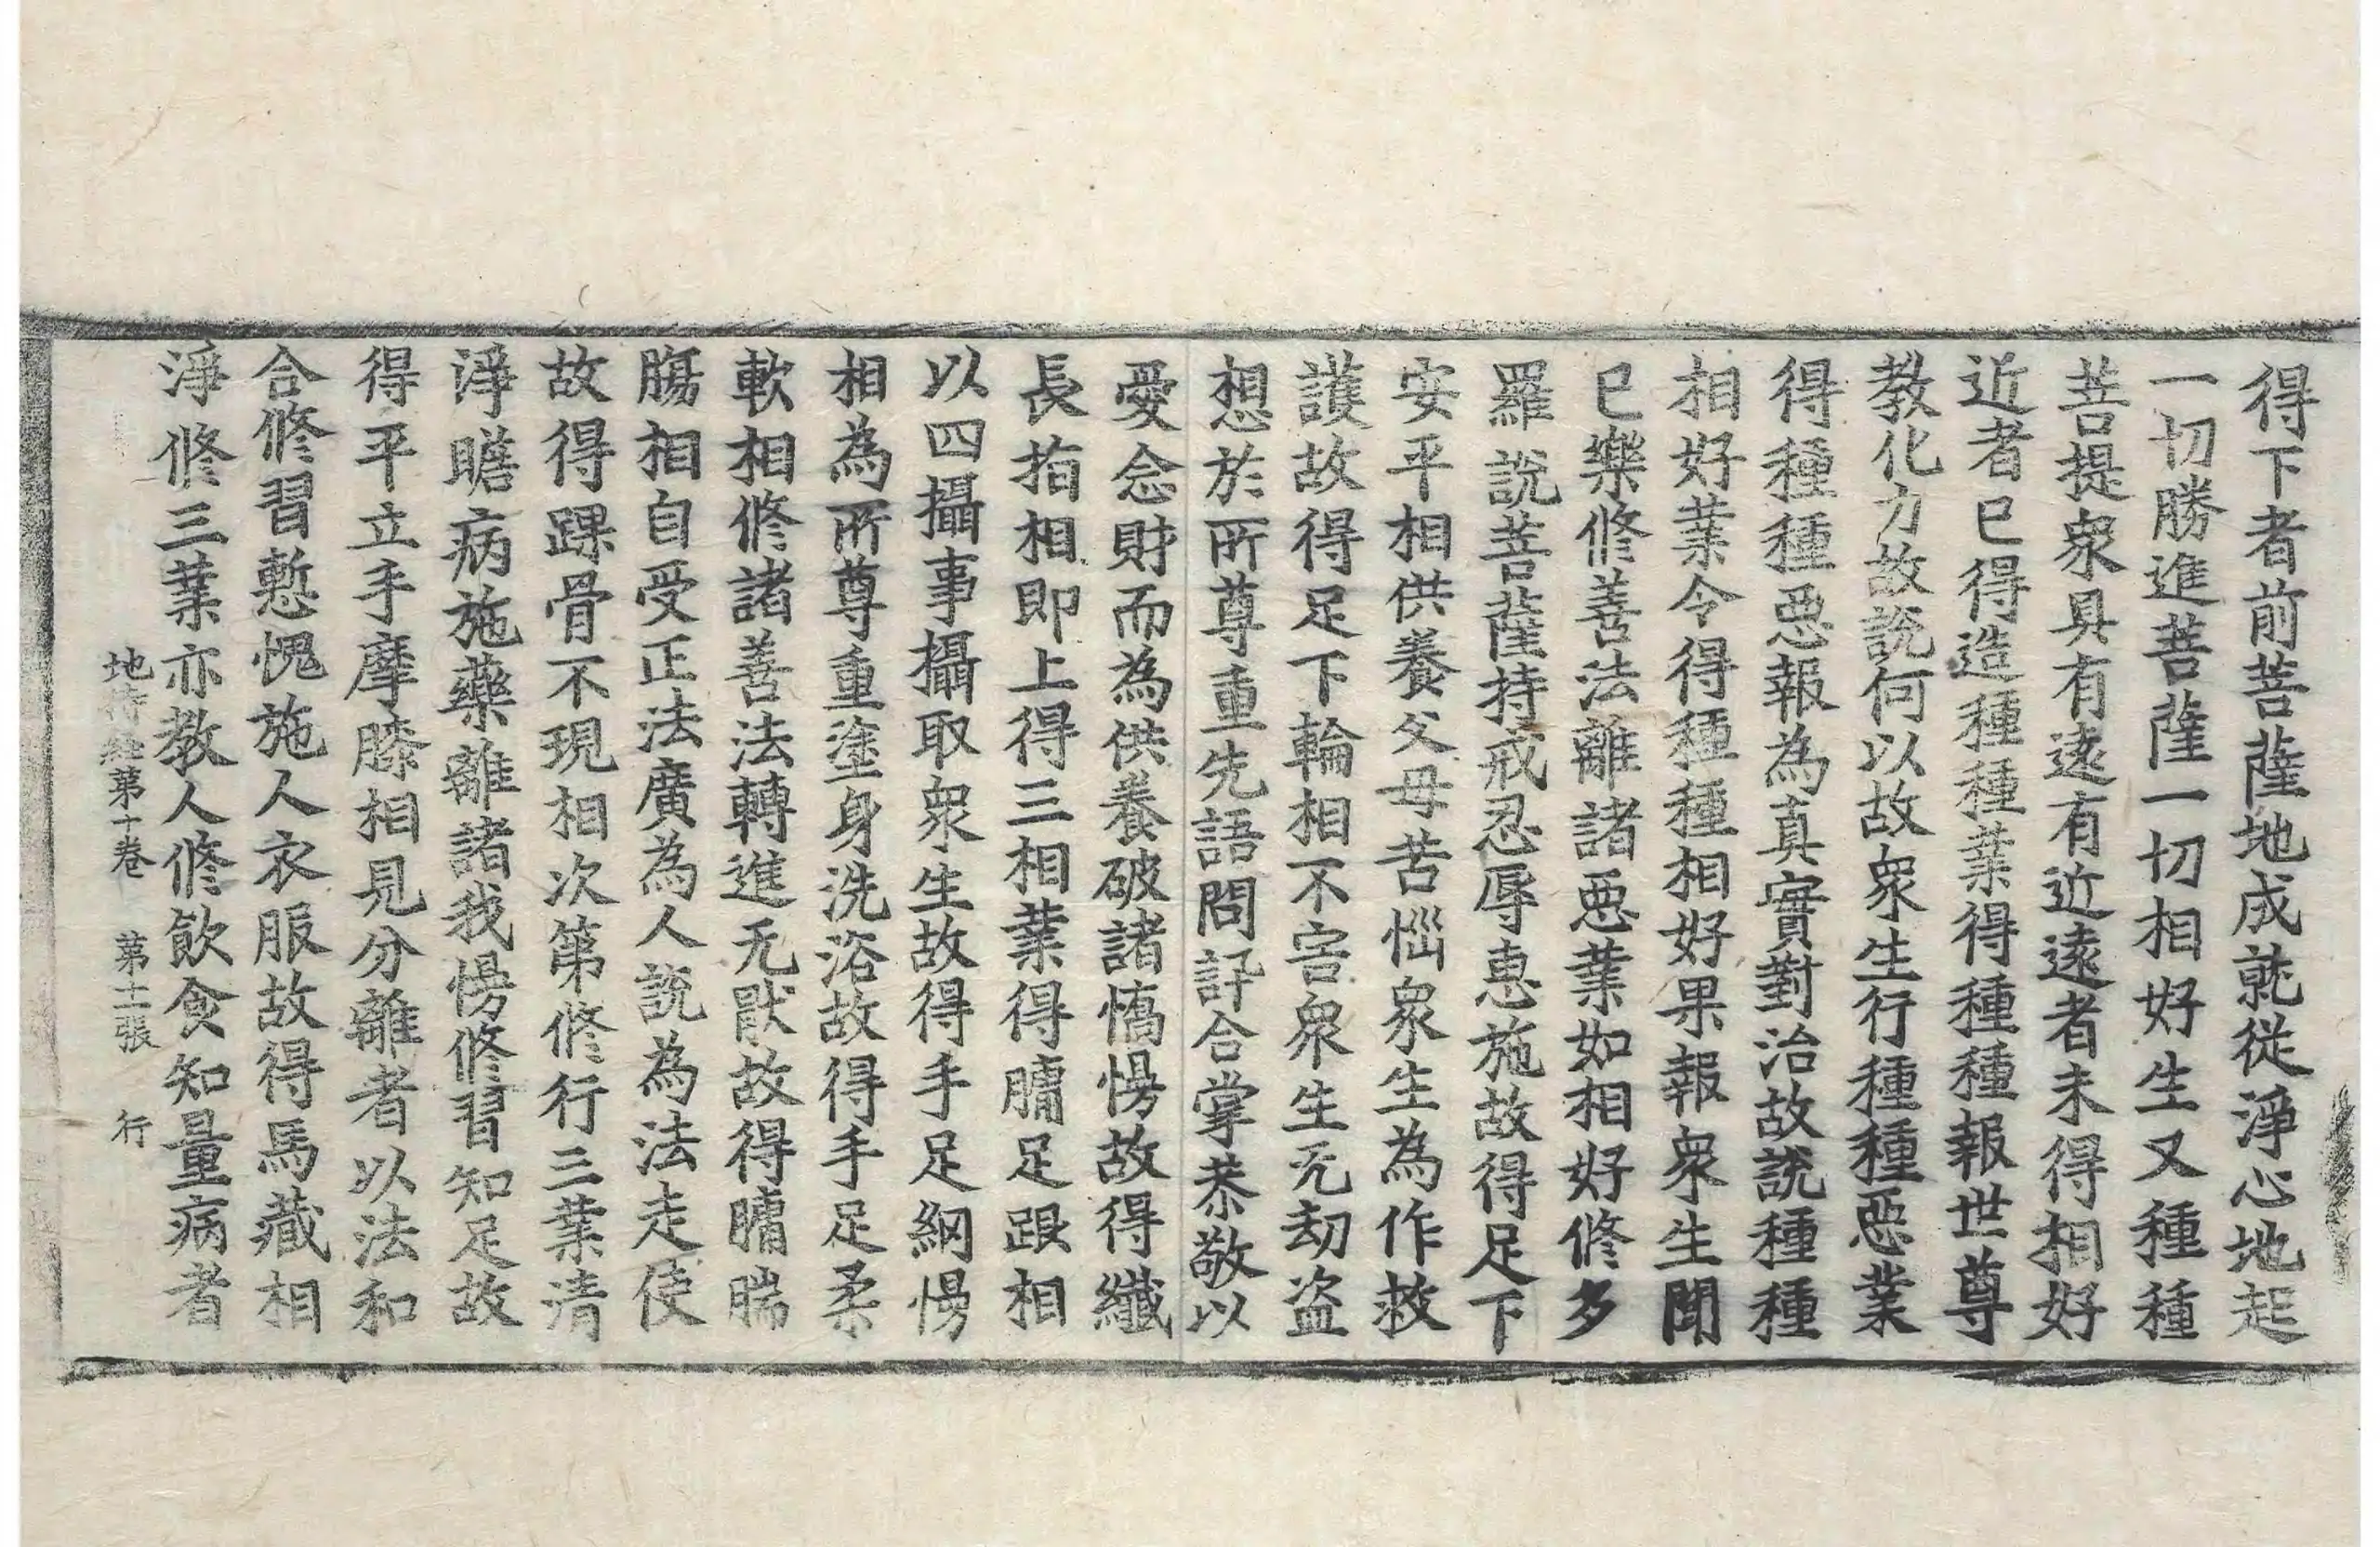 得下者前菩薩地成就從淨心地起
一切勝進菩薩一切相好生又種種
菩提衆具有遠有近遠者未得相好
近者已得造種種業得種種報世尊
教化力故說何以故衆生行種種惡業
得種種惡報為真實對治故說種種
相好業令得種種相好果報衆生聞
已樂修善法離諸惡業如相好修多
羅說菩薩持戒忍辱惠施故得足下
安平相供養父母苦惱衆生為作救
護故得足下輪相不害衆生无劫盜
想於所尊重先語問訊合掌恭敬以
愛念財而為供養破諸憍慢故得纖
長指相即上得三相業得𦟛足跟相
以四攝事攝取衆生故得手足網慢
相為所尊重塗身洗浴故得手足柔
軟相修諸善法轉進无猒故得𦟛腨
腸相自受正法廣為人說為法走使
故得踝骨不現相次第修行三業清
淨瞻病施藥離諸我慢修習知足故
得平立手摩膝相見分離者以法和
合修習慙愧施人衣服故得馬藏相
淨修三業亦教人修飲食知量病者
地持經第十卷 第十二張 行